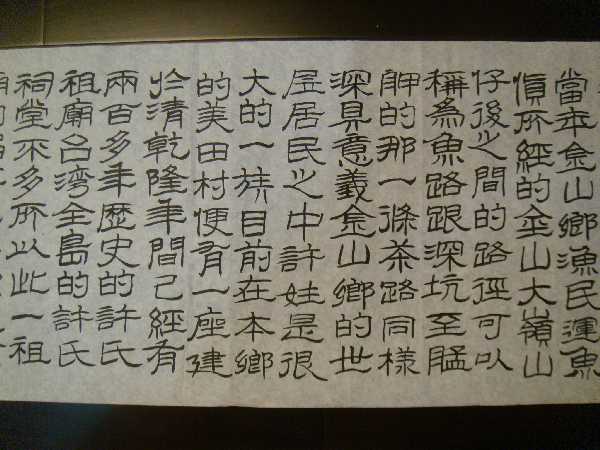 當年金山鄉漁民運魚
所經的金山大嶺山
仔後之間的路徑可以
稱為魚路跟深坑至艋
舺的那一條茶路同樣
深具意義金山鄉的世
居居民之中許姓是很
大的一族目前在本鄉
的美田村便有一座建
於清乾隆年間已經有
兩百多年歷史的許氏
祖廟台灣全島的許氏
祠堂不多所以此一祖